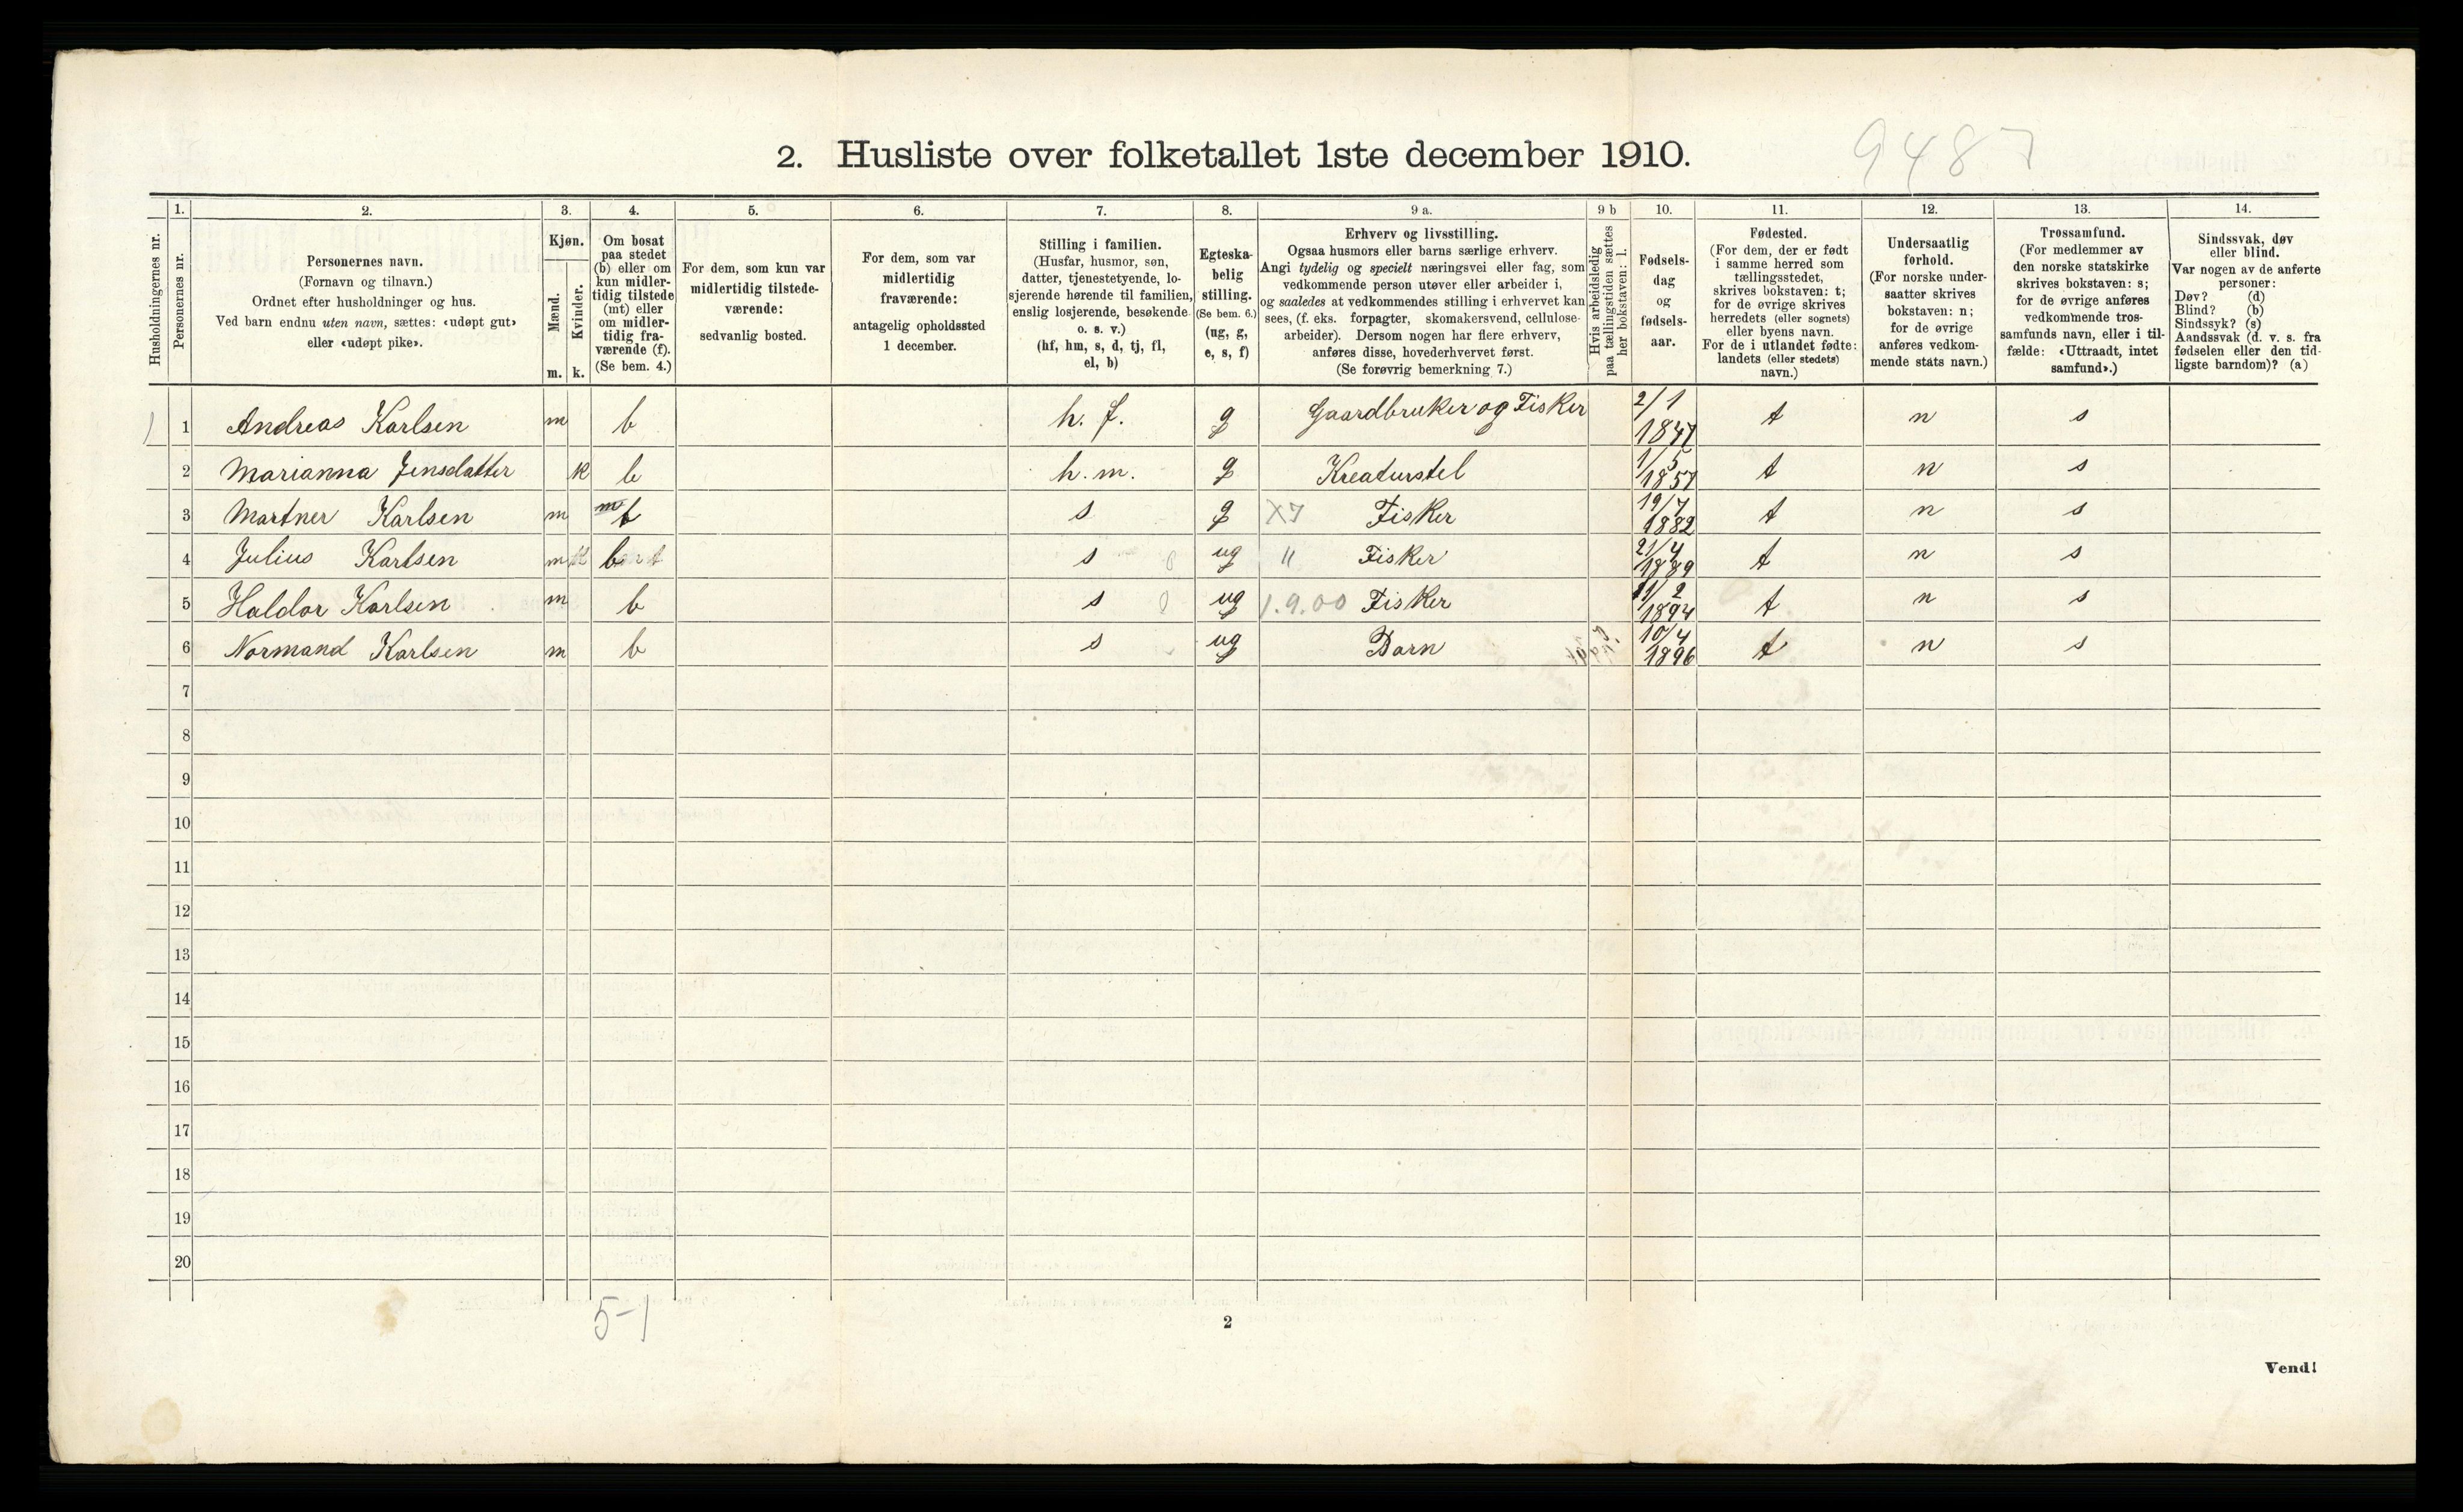 2. Husliste over folketallet 1ste december 1910.
9487
Husholdningernes nr.
1.
Personernes nr.
2.
Personernes navn.
(Fornavn og tilnavn.)
Ordnet efter husholdninger og hus.
Ved barn endnu uten navn, sættes: «udøpt gut»
eller «udøpt pike».
3.
Kjøn.
Mænd.
Kvinder.
m. k.
4.
Om bosat
paa stedet
(b) eller om
kun midler-
tidig tilstede
(mt) eller
om midler-
tidig fra-
værende (f).
(Se bem. 4.)
5.
For dem, som kun var
midlertidig tilstede-
værende:
sedvanlig bosted.
6.
For dem, som var
midlertidig
fraværende:
antagelig opholdssted
1 december.
7.
Stilling i familien.
(Husfar, husmor, søn,
datter, tjenestetyende, lo-
sjerende hørende til familien,
enslig losjerende, besøkende
o. s. v.)
(hf, hm, s, d, tj, fl,
el, b)
8.
Egteska-
belig
stilling.
(Se bem. 6.)
(ug, g,
e, s, f)
9 a.
Erhverv og livsstilling.
Ogsaa husmors eller barns særlige erhverv.
Angi tydelig og specielt næringsvei eller fag, som
vedkommende person utøver eller arbeider i,
og saaledes at vedkommendes stilling i erhvervet kan
sees, (f. eks. forpagter, skomakersvend, cellulose-
arbeider). Dersom nogen har flere erhverv,
anføres disse, hovederhvervet først.
(Se forøvrig bemerkning 7.)
9 b
Hvis arbeidsledig
paa tællingstiden sættes
her bokstaven: l.
10.
Fødsels-
dag
og
fødsels-
aar.
11.
Fødested.
(For dem, der er født
i samme herred som
tællingsstedet,
skrives bokstaven: t;
for de øvrige skrives
herredets (eller sognets)
eller byens navn.
For de i utlandet fødte:
landets (eller stedets)
navn.)
12.
Undersaatlig
forhold.
(For norske under-
saatter skrives
bokstaven: n;
for de øvrige
anføres vedkom-
mende stats navn.)
13.
Trossamfund.
(For medlemmer av
den norske statskirke
skrives bokstaven: s;
for de øvrige anføres
vedkommende tros-
samfunds navn, eller i til-
fælde: «Uttraadt, intet
samfund».)
14.
Sindssvak, døv
eller blind.
Var nogen av de anførte
personer:
Døv? (d)
Blind? (b)
Sindssyk? (s)
Aandssvak (d. v. s. fra
fødselen eller den tid-
ligste barndom)? (a)
1 Andreas Karlsen m b h. f. g Gaardbruker og Fisker 2/1 1847 t n s
2 Marianna Jensdatter k b h. m. g Kreaturstel 1/5 1857 t n s
3 Martner Karlsen m b s g X7 Fisker 19/7 1882 t n s
4 Julius Karlsen m b s ug " Fisker 21/4 1889 t n s
5 Haldor Karlsen m b s ug 1.9.00 Fisker 11/2 1894 t n s
6 Normand Karlsen m b s ug Barn 10/4 1896 t n s
7
8
9
10
11
12
13
14
15
16
17
18
19
20
5-1
2
Vend!